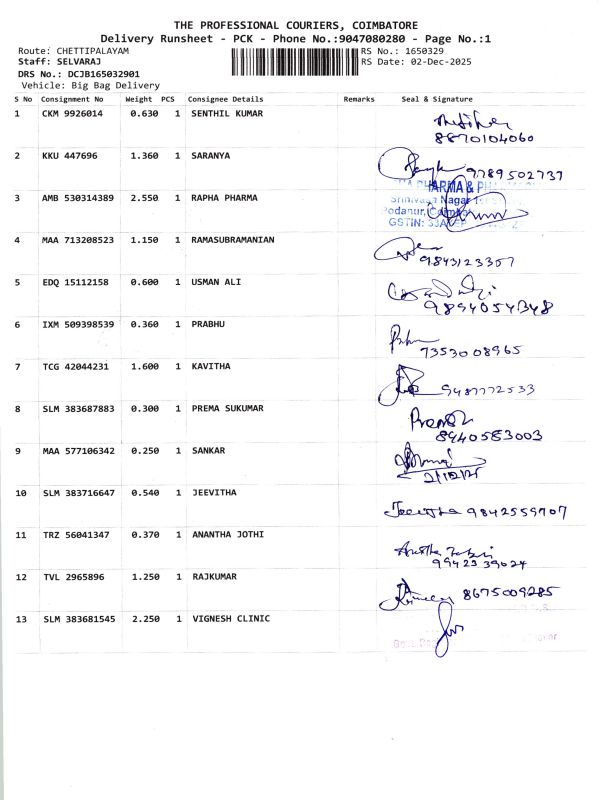 THE PROFESSIONAL COURIERS, COIMBATORE
Delivery Runsheet - PCK - Phone No.:9047080280 - Page No.:1
Route: CHETTIPALAYAM RS No.: 1650329
Staff: SELVARAJ RS Date: 02-Dec-2025
DRS No.: DCJB165032901
Vehicle: Big Bag Delivery
S No Consignment No Weight PCS Consignee Details Remarks Seal & Signature
1 CKM 9926014 0.630 1 SENTHIL KUMAR
8870104060
2 KKU 447696 1.360 1 SARANYA 9789502737
PHARMA &
3 AMB 530314389 2.550 1 RAPHA PHARMA Nagar
Podanur,
GSTIN:
4 MAA 713208523 1.150 1 RAMASUBRAMANIAN
9843123357
5 EDQ 15112158 0.600 1 USMAN ALI
9894054348
6 IXM 509398539 0.360 1 PRABHU
7353008965
7 TCG 42044231 1.600 1 KAVITHA
9487772533
8 SLM 383687883 0.300 1 PREMA SUKUMAR
8940583003
9 MAA 577106342 0.250 1 SANKAR
2/12/25
10 SLM 383716647 0.540 1 JEEVITHA Jeevitha 9842559707
11 TRZ 56041347 0.370 1 ANANTHA JOTHI
9942339024
12 TVL 2965896 1.250 1 RAJKUMAR 8675009285
13 SLM 383681545 2.250 1 VIGNESH CLINIC